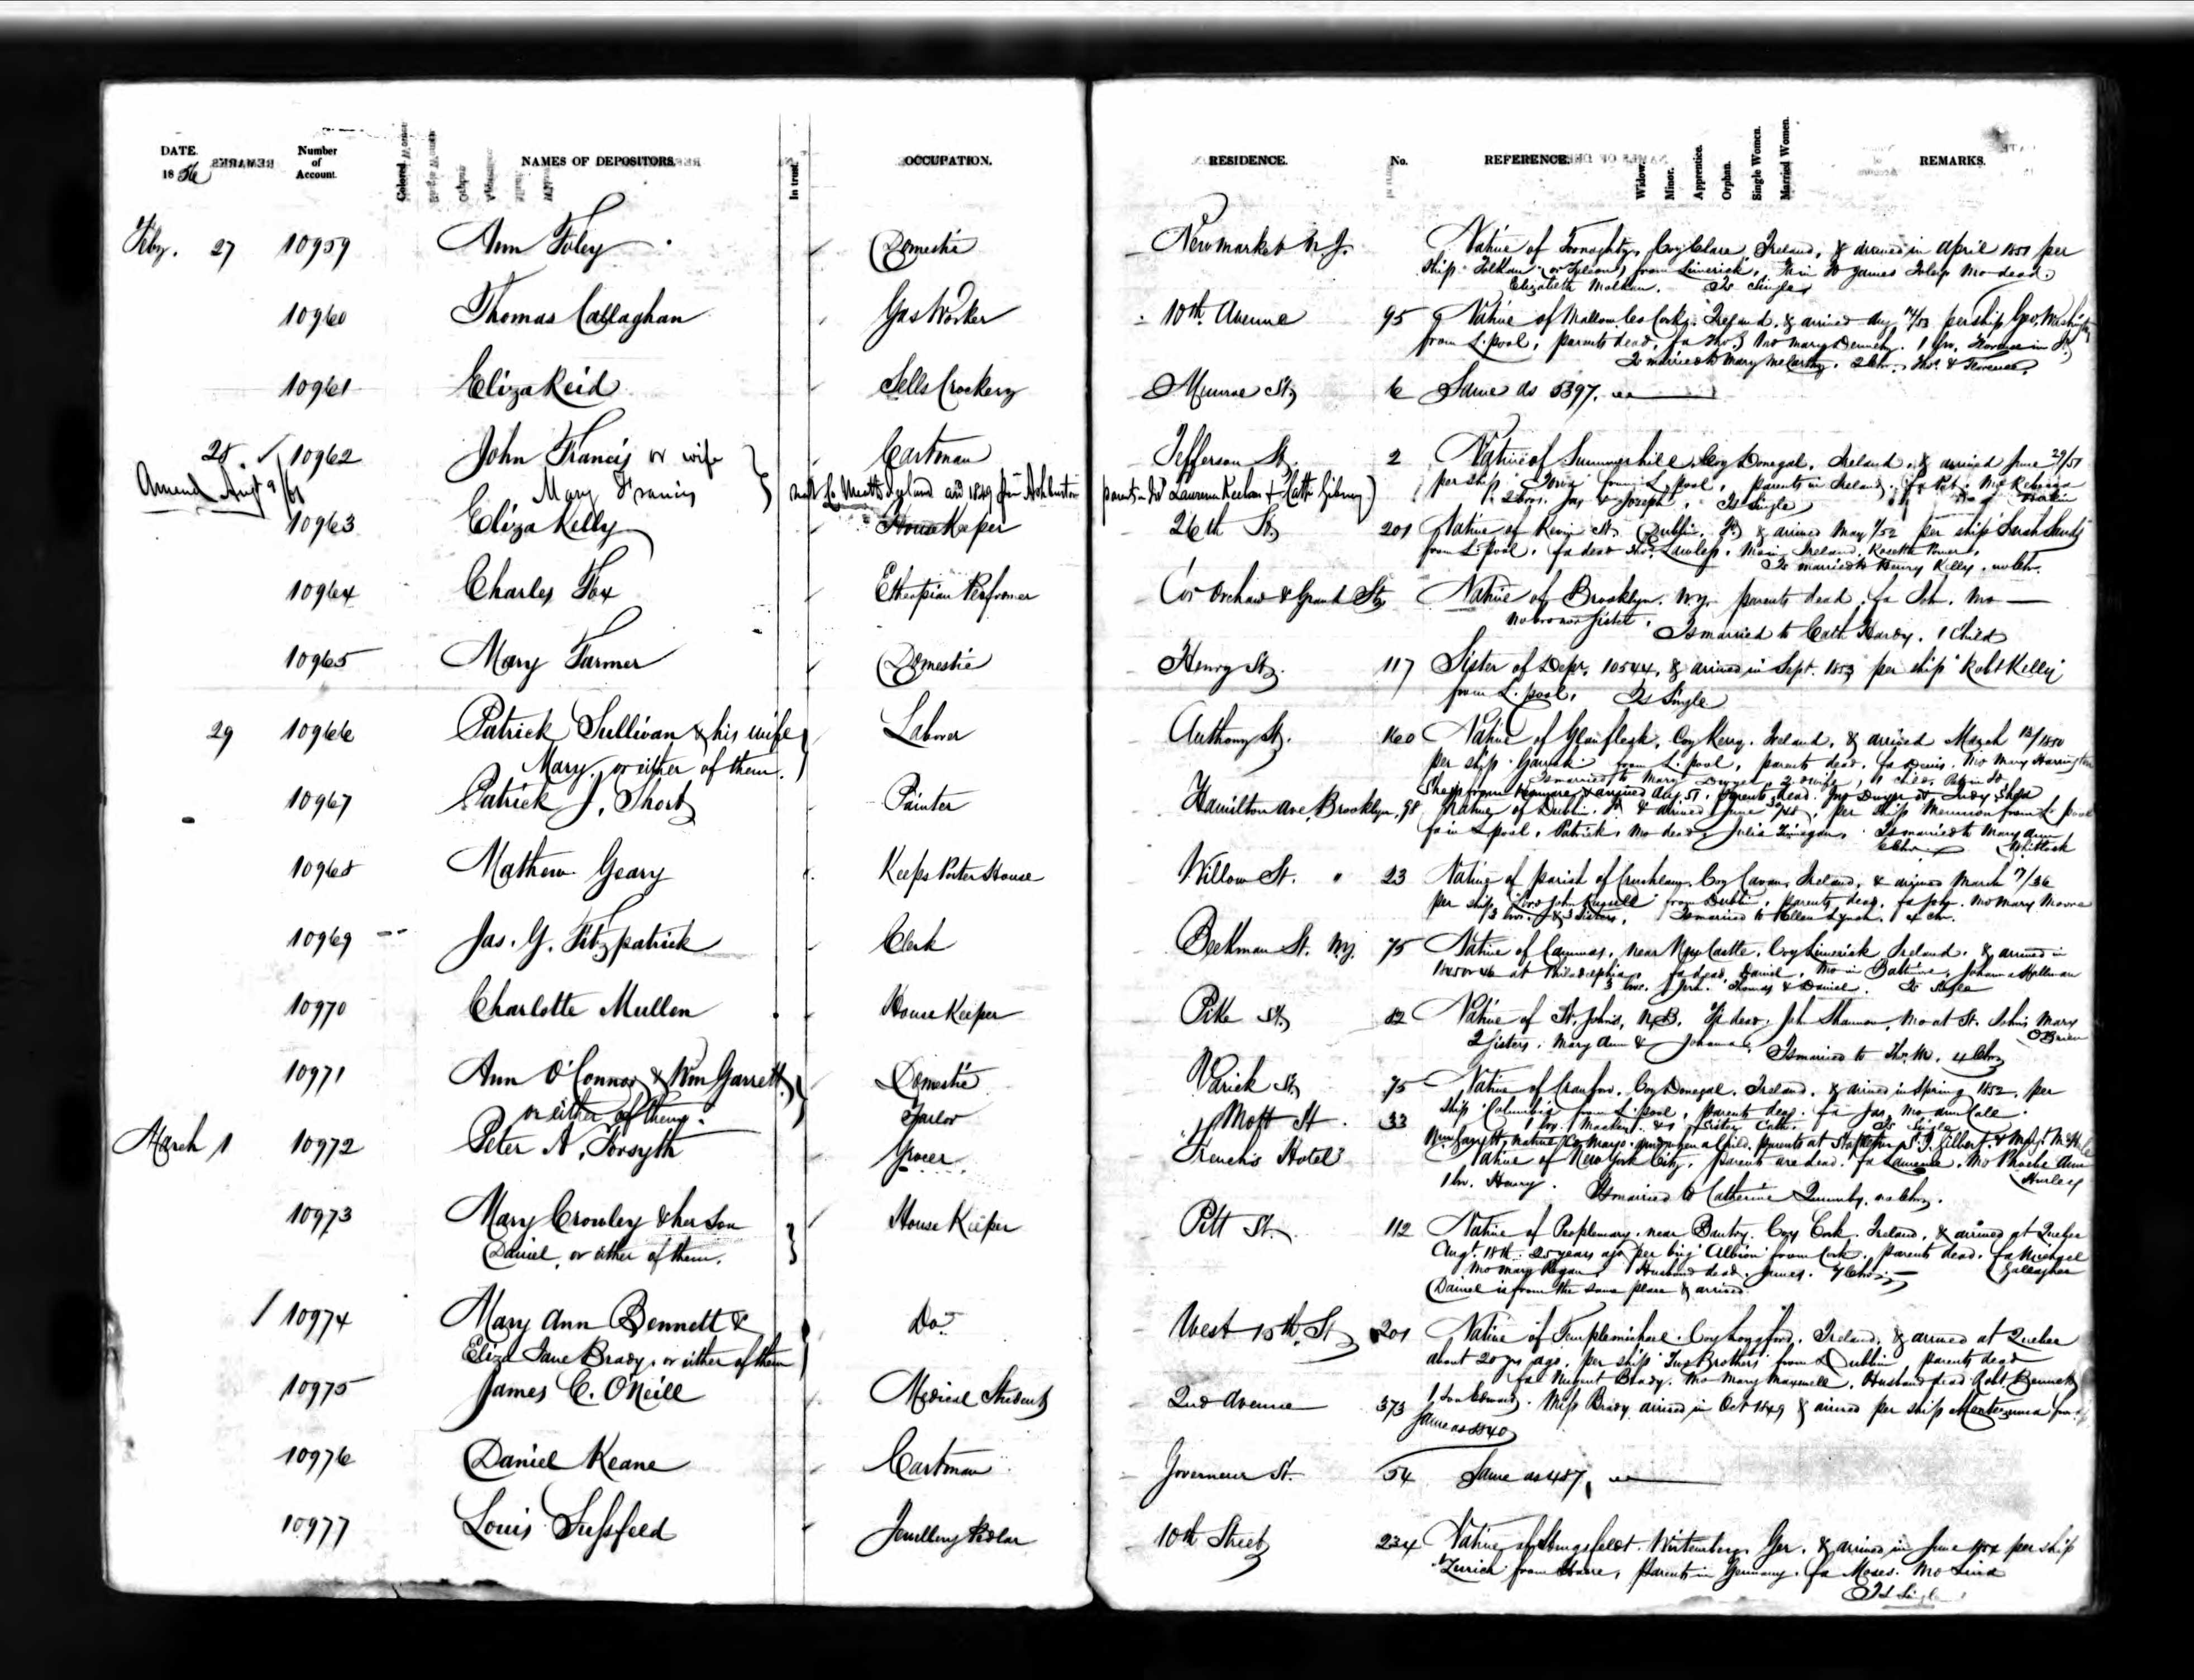 DATE. 1856
Number of Account.
Colored.
NAMES OF DEPOSITORS.
In trust.
OCCUPATION.
RESIDENCE.
No.
REFERENCE.
Widow.
Minor.
Apprentice.
Orphan.
Single Women.
Married Women.
REMARKS.
Feby. 27 10959 Ann Foley Domestic Newmarket N.J. Native of Coy Clare, Ireland, & arrived in April 1851 per
ship from Limerick, James Foley Mo dead.
Elizabeth Is Single
10960 Thomas Callaghan Gas Worker 10th Avenue 95 Native of Mallow, Co Cork, Ireland, & arrived Aug 14/53 per ship Geo. Washington
from L.pool, parents dead, fa Tho. Mo Mary 1 bro. Florence in
Is married to Mary McCarthy, 2 chn. Tho. & Florence
10961 Eliza Reid Sells Crockery Munroe St. 6 Same as 5397.
28 10962 John Francis or wife Cartman Jefferson St. 2 Native of Summerhill, Coy Donegal, Ireland, & arrived June 29/51
Mary Francis
Amend Augt 9/61
per ship from L.pool, parents in Ireland, fa Pat. Mo Rebecca
2 bros. Jas & Joseph. Is Single
Meath Ireland arr 1849 Ashburton parents Laurence & Cath
10963 Eliza Kelly House Keeper 26th St. 201 Native of Kevin St. Dublin, & arrived May 1/52 per ship Sarah Sands
from L.pool, fa dead Tho. Lawless, Mo in Ireland, Rosetta Power,
Is married to Henry Kelly. no chn.
10964 Charles Fox Etheopian Performer Cor Orchard & Grand Sts Native of Brooklyn, N.Y. parents dead, fa Joh. Mo —
no bro nor sister. Is married to Cath Hardy. 1 Child
10965 Mary Farmer Domestic Henry St. 117 Sister of Depr. 10544, & arrived in Sept. 1853 per ship Robt Kelly
from L.pool, Is Single
29 10966 Patrick Sullivan & his wife Laborer Anthony St. 160 Native of Glanflesk, Coy Kerry, Ireland, & arrived March 13/1850
Mary, or either of them.
per ship Garrick from L.pool, parents dead, fa Denis, Mo Mary Harrington
Is married to Mary Dwyer, 1 child
She is from Kenmare & arrived Aug 51. Parents dead. Jno Dwyer & Judy Shea
10967 Patrick J. Short Painter Hamilton Ave, Brooklyn, 98 Native of Dublin, & arrived June 30/48, per ship from L.pool
fa in L.pool, Patrick, Mo dead, Julia Finegan, Is married to Mary Ann
Whitlock
10968 Mathew Geary Keeps Porter House Willow St. " 23 Native of parish of Coy Cavan, Ireland, & arrived March 7/36
per ship Lord John Russell from Dublin, parents dead, Mo Mary Moore
3 bro. & 3 Sisters, Is married to Ellen Lynch. 4 chn.
10969 Jas. G. Fitzpatrick Clerk Beekman St. N.Y. 75 Native of near New Castle, Coy Limerick Ireland, & arrived in
1845 or 46 at Philadelphia, fa dead, Daniel, Mo in Baltimore, Johanna
3 bro. Jerh. Thomas & Daniel. Is Single
10970 Charlotte Mullen House Keeper Pike St. 82 Native of St. Johns, N.B. Fa dead. Joh Shannon, Mo at St. Johns Mary
O'Brien
2 Sisters, Mary Ann & Johanna, Is married to Tho. M. 4 Chn
10971 Ann O'Connor & Wm Garrett Domestic Varick St. 75 Native of Coy Donegal, Ireland, & arrived in Spring 1852, per
or either of them. Tailor Mott St. 33 ship Columbia from L.pool, parents dead. fa Jas, Mo Ann
& 1 Sister Cath. Is Single
Wm Garrett, native Co Mayo. arrd when a Child. Parents at Stapleton S.I.
March 1 10972 Peter A. Forsyth Grocer French's Hotel Native of New York City, Parents are dead. fa Laurence, Mo Phoebe Ann
Hurley
1 bro. Henry. Is married to Catherine Quimby. no chn.
10973 Mary Crowley & her Son House Keeper Pitt St. 112 Native of near Bantry, Coy Cork, Ireland, & arrived at Quebec
Daniel, or either of them.
Augt. 18th 25 years ago per brig Albion from Cork, parents dead. fa Michael
Gallagher
Mo Mary Regan, Husband dead. James. 7 Chn.
Daniel is from the same place & arrived
10974 Mary Ann Bennett & Do. West 15th St 201 Native of Templemichael, Coy Longford, Ireland, & arrived at Quebec
Eliza Jane Brady, or either of them
about 20 yrs ago, per ship Two Brothers from Dublin parents dead
fa Nugent Brady, Mo Mary Maxwell, Husband dead Robt. Bennett
1 Son Edward. Miss Brady arrived in Oct 1849 & arrived per ship Montezuma
10975 James C. O'Neill Medical Student 2nd Avenue 373 Same as 8840
10976 Daniel Keane Cartman Governeur St. 54 Same as 487,
10977 Louis Sussfeld Jewellery Pedlar 10th Street 234 Native of Wirtemberg, Ger. & arrived in June per ship
Zurich from Havre, Parents in Germany, fa Moses. Mo
Is Single